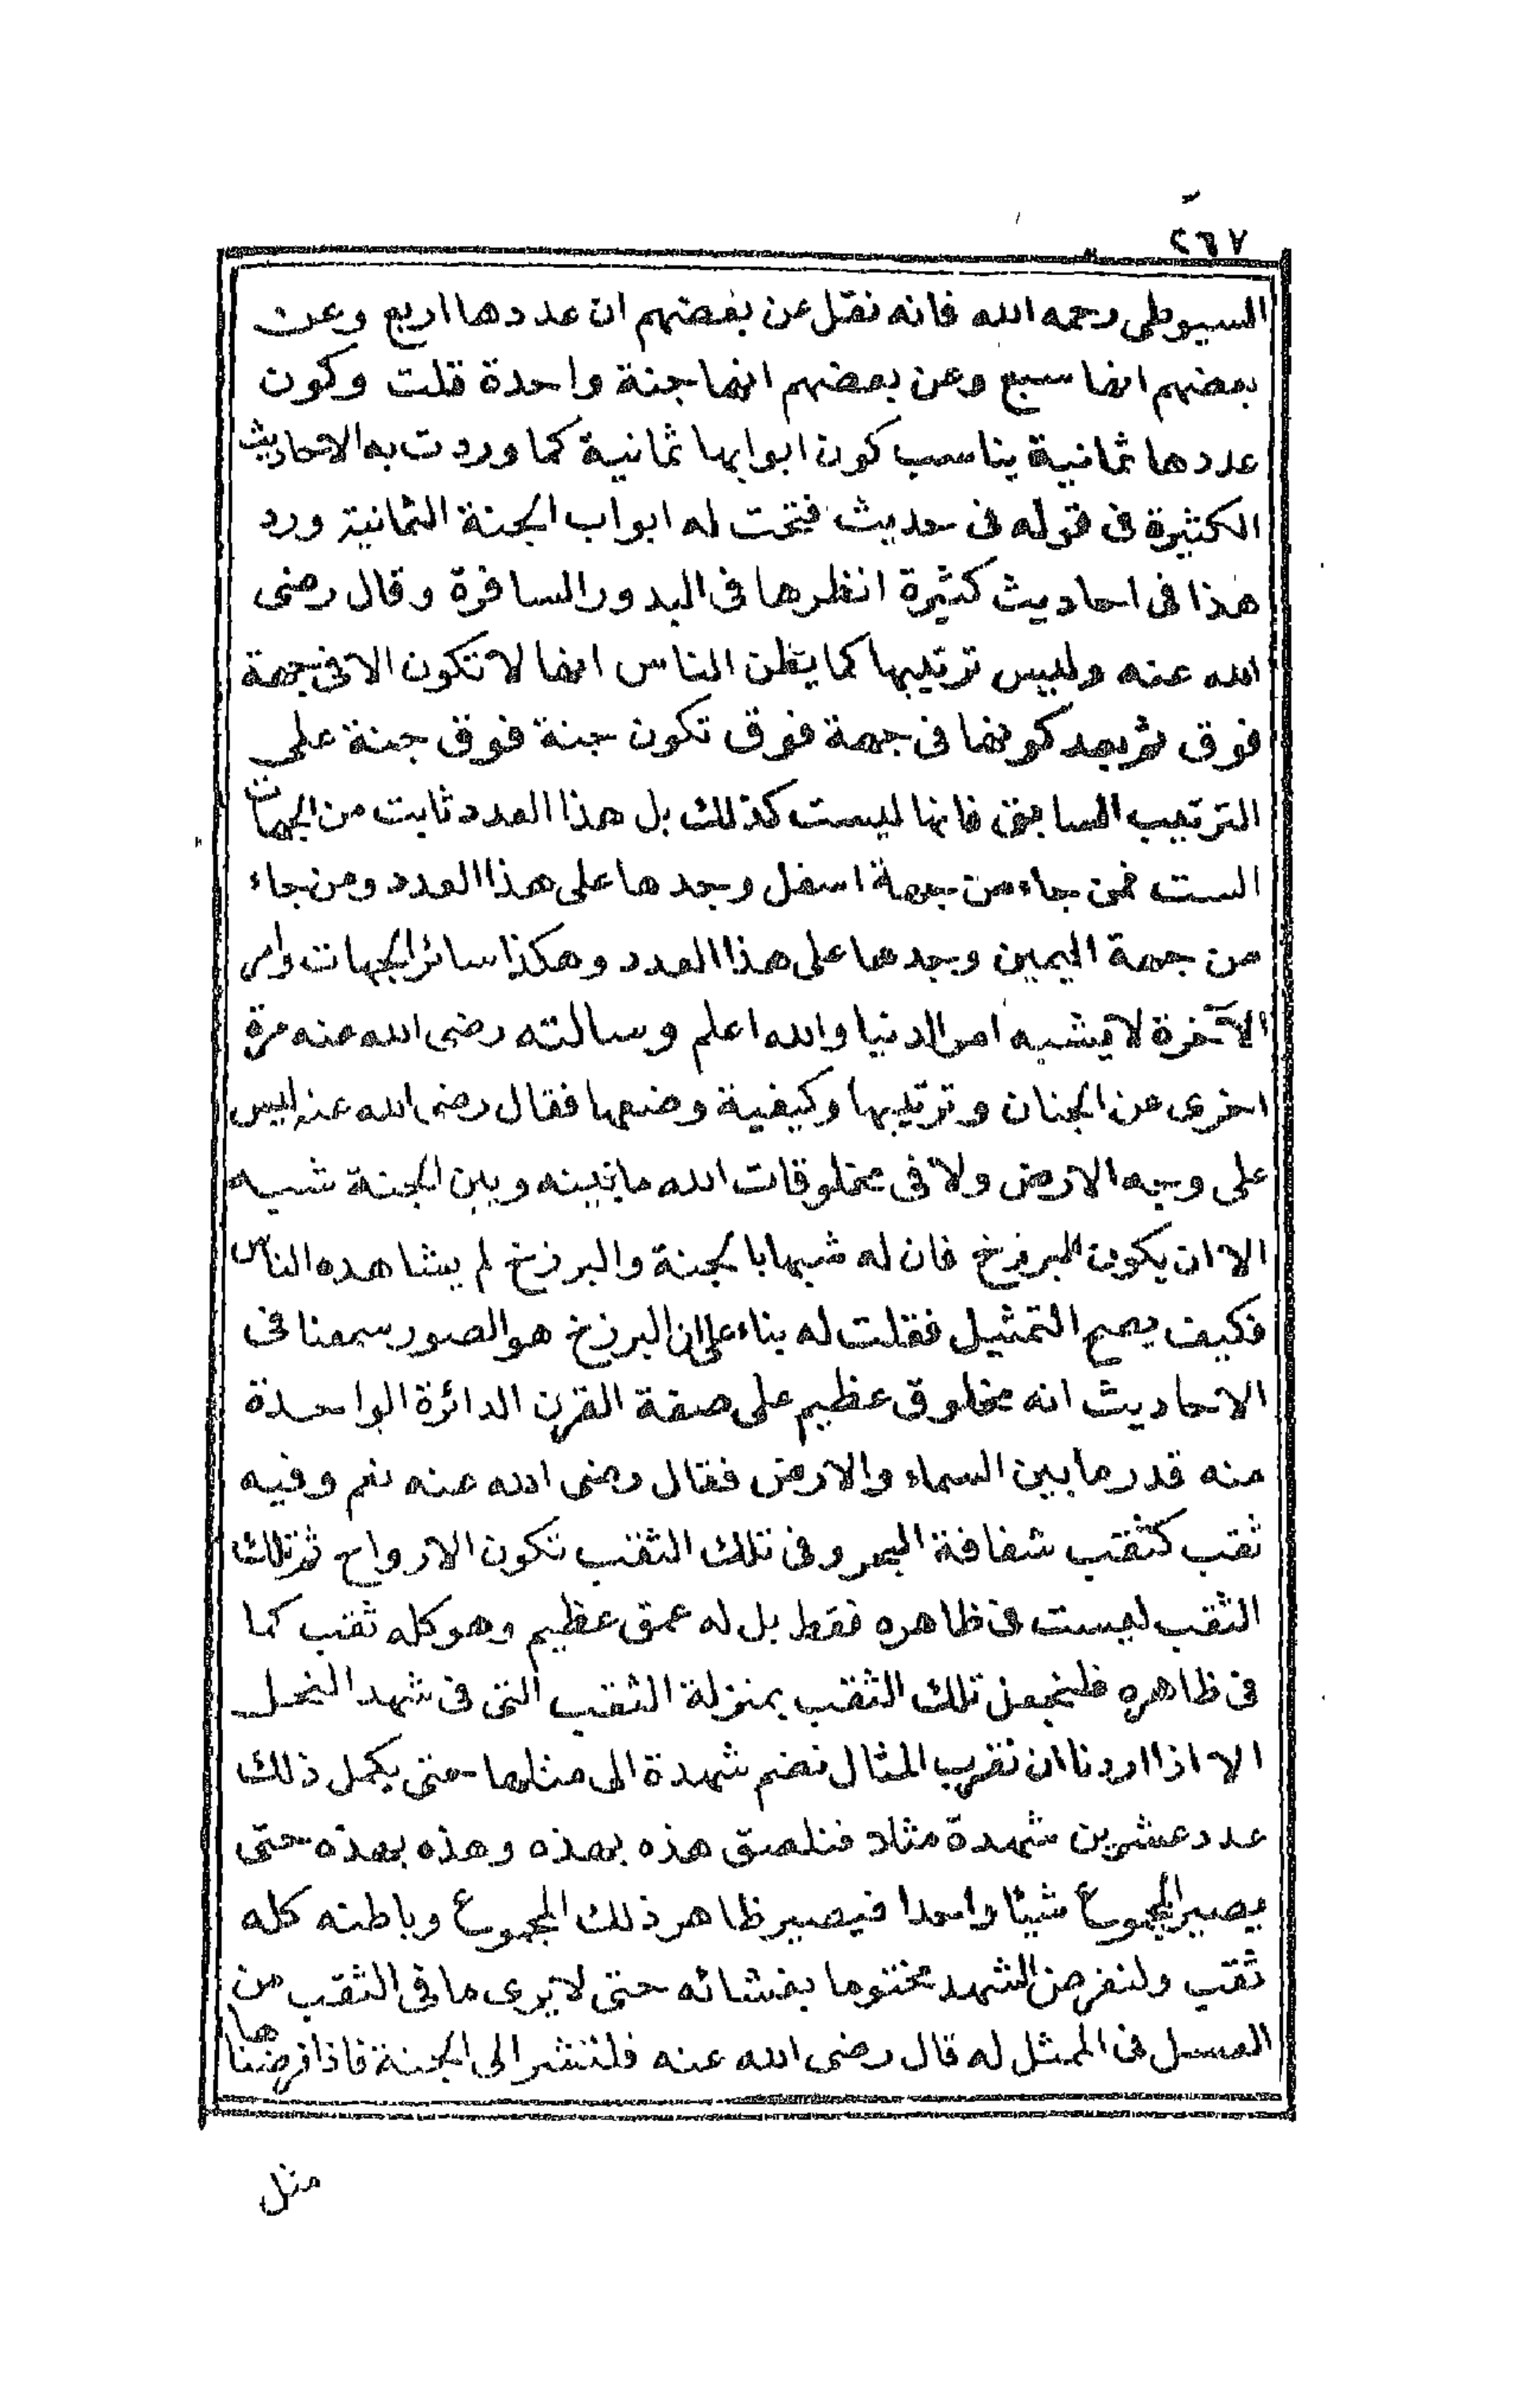 ٢٦٧
السيوطى رحمه الله فانه نقل عن بعضهم ان عددها اربع وعن
بعضهم انها سبع وعن بعضهم انها جنة واحدة قلت وكون
عددها ثمانية يناسب كون ابوابها ثمانية كما وردت به الاحاديث
الكثيرة فى قوله فى حديث فتحت له ابواب الجنة الثمانية ورد
هذا فى احاديث كثيرة انظرها فى البدور السافرة وقال رضى
الله عنه وليس ترتيبها كما يظن الناس انها لا تكون الا فى جهة
فوق ثم بعد كونها فى جهة فوق تكون جنة فوق جنة على
الترتيب السابق فانها ليست كذلك بل هذا العدد ثابت من الجهات
الست فمن جاء من جهة اسفل وجدها على هذا العدد ومن جاء
من جهة اليمين وجدها على هذا العدد وهكذا سائر الجهات وامر
الآخرة لا يشبه امر الدنيا والله اعلم وسالته رضى الله عنه مرة
اخرى عن الجنان وترتيبها وكيفية وضعها فقال رضى الله عنه ليس
على وجه الارض ولا فى مخلوقات الله ما بينه وبين الجنة شبه
الا ان يكون البرزخ فان له شبها بالجنة والبرزخ لم يشاهده الناس
فكيف يصح التمثيل فقلت له بناء على ان البرزخ هو الصور سمعنا فى
الاحاديث انه مخلوق عظيم على صفة القرن الدائرة الواحدة
منه قدر ما بين السماء والارض فقال رضى الله عنه نعم وفيه
ثقب كثقب شفافة البحر وفى تلك الثقب تكون الارواح ثم تلك
الثقب ليست فى ظاهره فقط بل له عمق عظيم وهو كله ثقب كما
فى ظاهره فلنجعل تلك الثقب بمنزلة الثقب التى فى شهد النحل
الا اذا اردنا ان نقرب المثال نضم شهدة الى مثلها حتى يكمل ذلك
عدد عشرين شهدة مثلا فنلصق هذه بهذه وهذه بهذه حتى
يصير المجموع شيئا واحدا فيصير ظاهر ذلك المجموع وباطنه كله
ثقب ولنفرض الشهد مختوما بغشائه حتى لا يرى ما فى الثقب من
العسل فى الممثل له قال رضى الله عنه فلنشر الى الجنة فاذا فرضناها
مثل